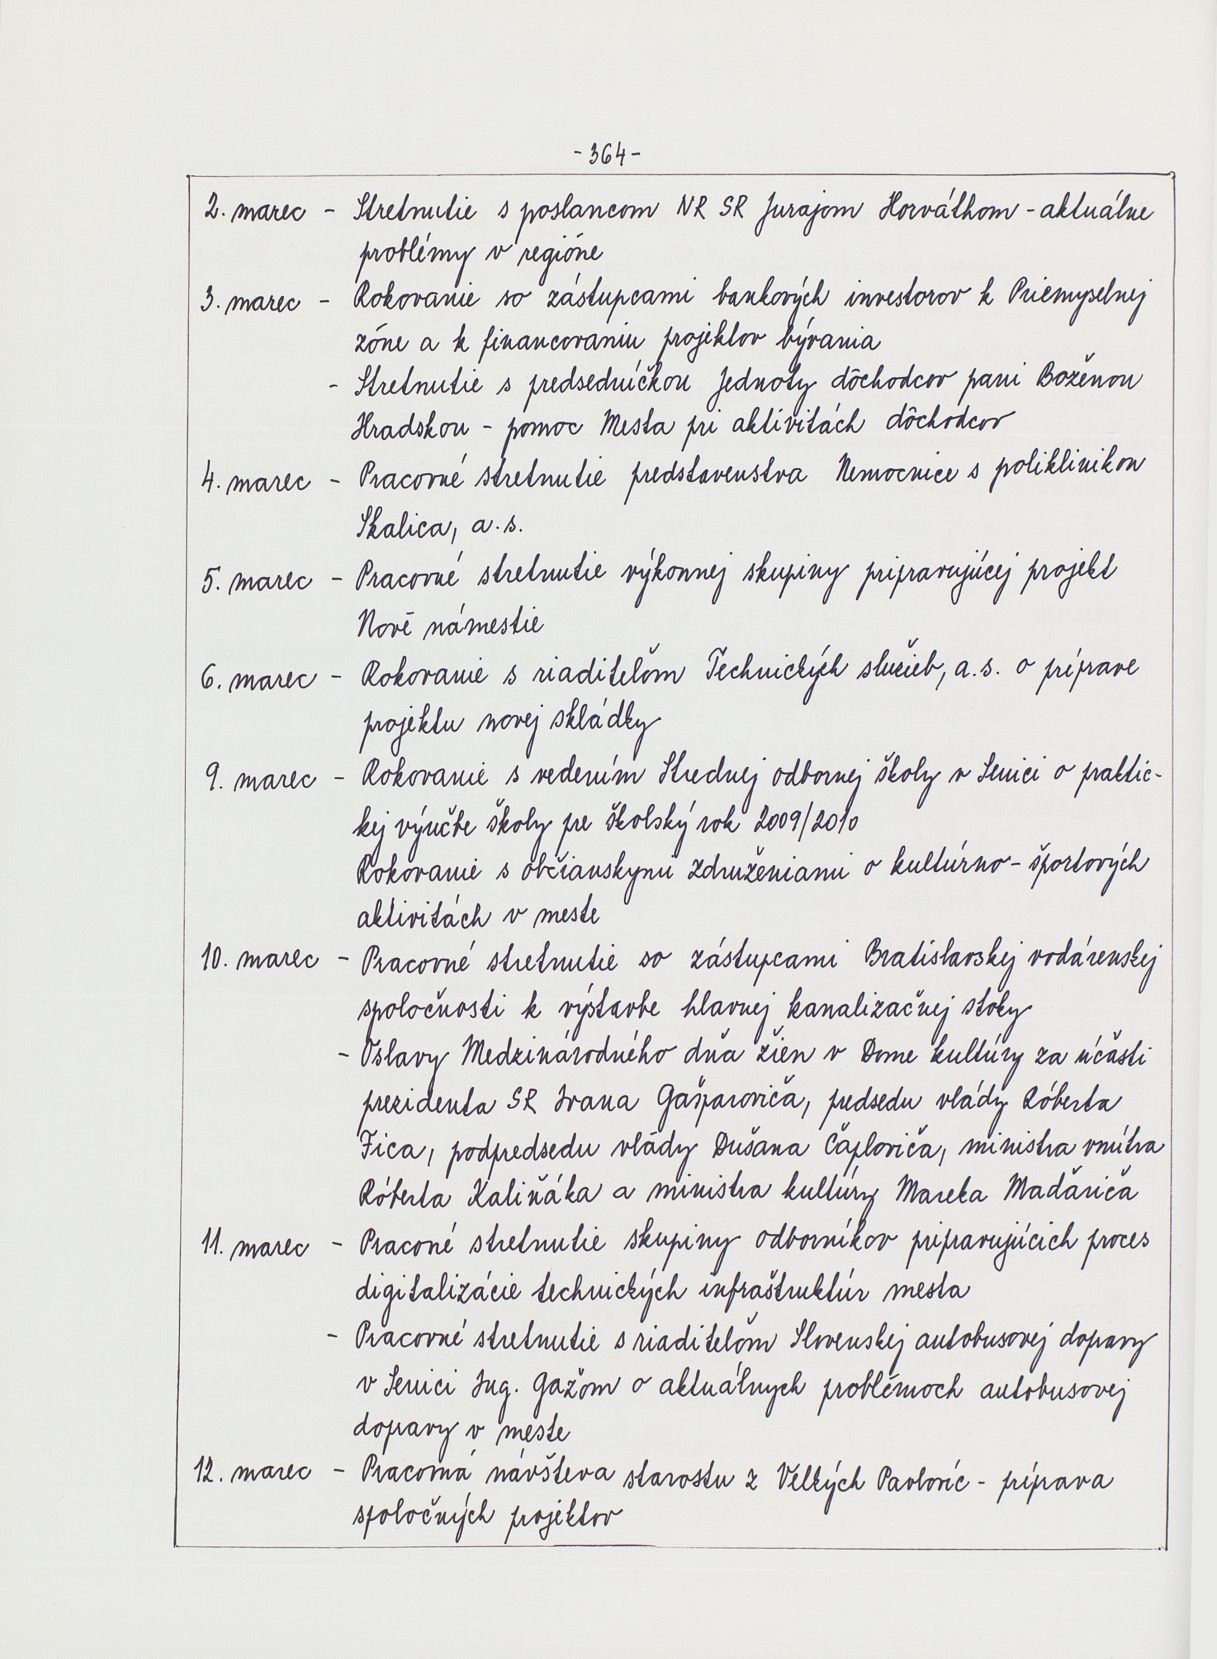 -364-
2. marec - Stretnutie s poslancom NR SR Jurajom Horváthom - aktuálne
problémy v regióne
3. marec - Rokovanie so zástupcami bankových investorov k Priemyselnej
zóne a k financovaniu projektov bývania
- Stretnutie s predsedníčkou Jednoty dôchodcov pani Boženou
Hradskou - pomoc Mesta pri aktivitách dôchodcov
4. marec - Pracovné stretnutie predstavenstva Nemocnice s poliklinikou
Skalica, a.s.
5. marec - Pracovné stretnutie výkonnej skupiny pripravujúcej projekt
Nové námestie
6. marec - Rokovanie s riaditeľom Technických služieb, a.s. o príprave
projektu novej skládky
9. marec - Rokovanie s vedením Strednej odbornej školy v Senici o praktic-
kej výučbe školy pre školský rok 2009/2010
Rokovanie s občianskymi združeniami o kultúrno-športových
aktivitách v meste
10. marec - Pracovné stretnutie so zástupcami Bratislavskej vodárenskej
spoločnosti k výstavbe hlavnej kanalizačnej stoky
- Oslavy Medzinárodného dňa žien v Dome kultúry za účasti
prezidenta SR Ivana Gašparoviča, predsedu vlády Róberta
Fica, podpredsedu vlády Dušana Čaploviča, ministra vnútra
Róberta Kaliňáka a ministra kultúry Mareka Maďariča
11. marec - Praconé stretnutie skupiny odborníkov pripravujúcich proces
digitalizácie technických infraštruktúr mesta
- Pracovné stretnutie s riaditeľom Slovenskej autobusovej dopravy
v Senici Ing. Gažom o aktuálnych problémoch autobusovej
dopravy v meste
12. marec - Pracovná návšteva starostu z Veľkých Pavlovíc - príprava
spoločných projektov